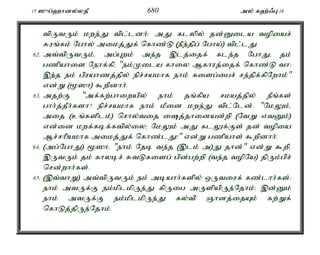 15 ஸுப்ஹானல்லதீ 680 அல் கஹ்ஃபு 18
விருவரும் மறந்து விட்டனர்; அது கடலில் தன்னுடைய வழியைச்
சுரங்கம் போல் அமைத்துக் கொண்டு (நீந்திப் போய்) விட்டது.
62. அவ்விருவரும், அப்புறம் அந்த இடத்தைக் கடந்த போது, தம்
பணியாளை நோக்கி, "நம்முடைய காலை ஆகாரத்தைக் கொண்டு வா;
இந்த நம் பிரயாணத்தில் நிச்சயமாக நாம் களைப்பைச் சந்திக்கிறோம்"
என்று (மூஸா) கூறினார்.
63. அதற்கு "அக்கற்பாறையில் நாம் தங்கிய சமயத்தில் நீங்கள்
பார்த்தீர்களா? நிச்சயமாக நாம் மீனை மறந்து விட்டேன். "மேலும்,
அதை (உங்களிடம்) சொல்வதை ஷைத்தானையன்றி (வேறு எவனும்)
என்னை மறக்கடிக்கவில்லை; மேலும் அது கடலுக்குள் தன் வழியை
ஆச்சரியமாக அமைத்துக் கொண்டது" என்று பணியாள் கூறினார்.
64. (அப்போது) மூஸா, "நாம் தேடி வந்த (இடம் அ)து தான்" என்று கூறி,
இருவரும் தம் காலடிச் சுவடுகளைப் பின்பற்றி (வந்த வழியே) திரும்பிச்
சென்றார்கள்.
65. (இவ்வாறு) அவ்விருவரும் நம் அடியார்களில் ஒருவரைக் கண்டார்கள்;
நாம் அவருக்கு நம்மிடமிருந்து கிருபை அருளியிருந்தோம்; இன்னும்
நாம் அவருக்கு நம்மிடமிருந்து கல்வி ஞானத்தையும் கற்றுக்
கொடுத்திருந்தோம்.